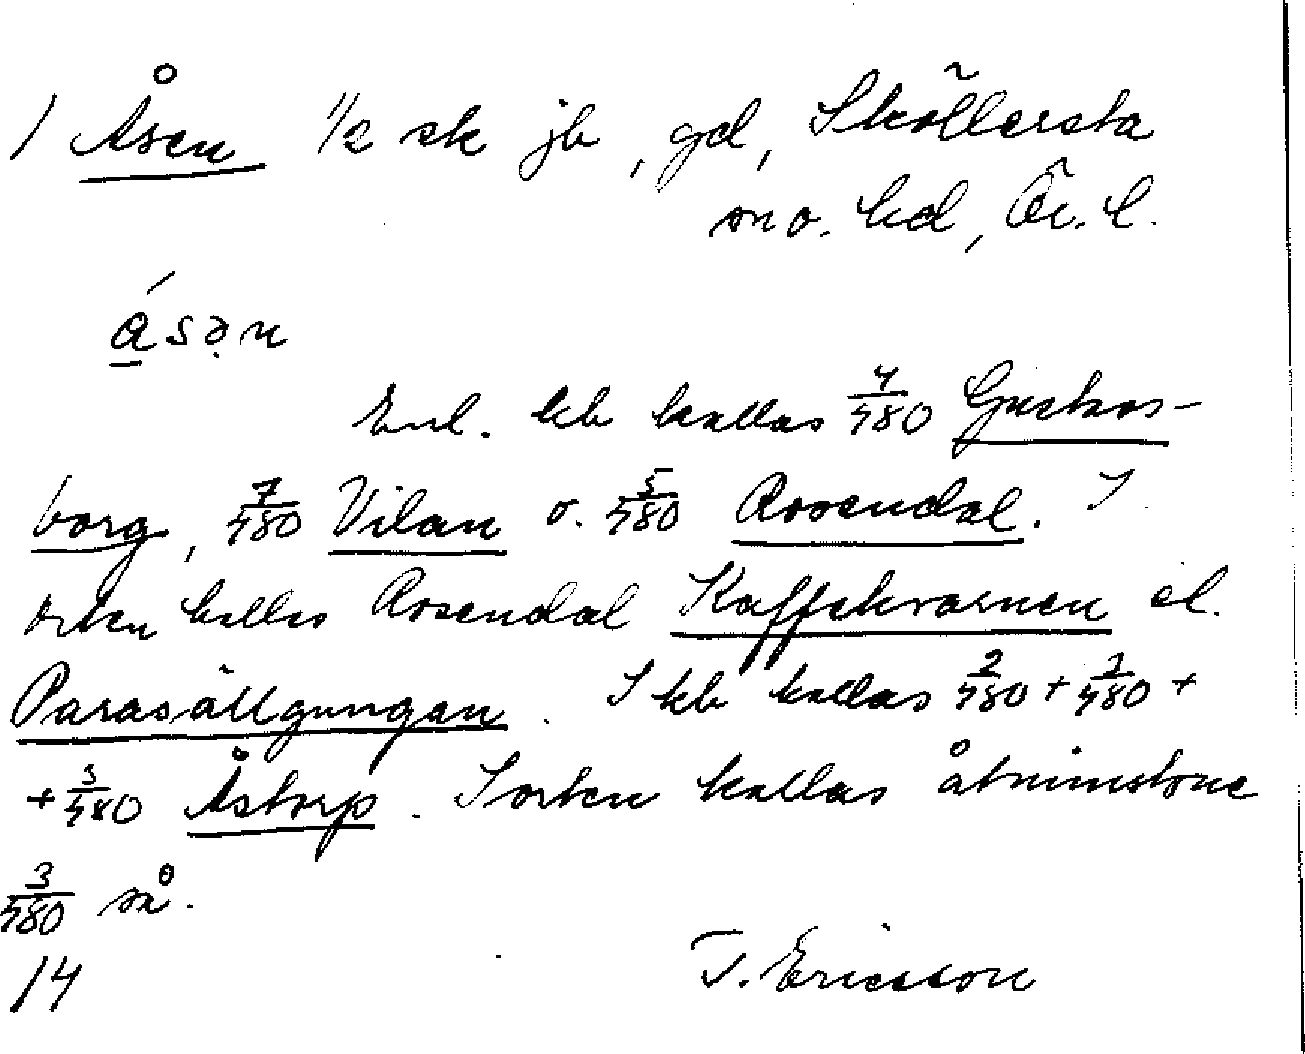 1 Åsen 1/2 sk jb, gd, Sköllersta
sn o. hd, Ör. l.
á s ə n
Enl. kb kallas 4/480 Gustavs-
borg, 7/480 Vilan o. 5/480 Rosendal. I
orten kallas Rosendal Kaffekvarnen el.
Parasällgungan. I kb kallas 2/480 + 1/480 +
+ 3/480 Åstorp. I orten kallas åtminstone
3/480 så.
14 T. Ericsson